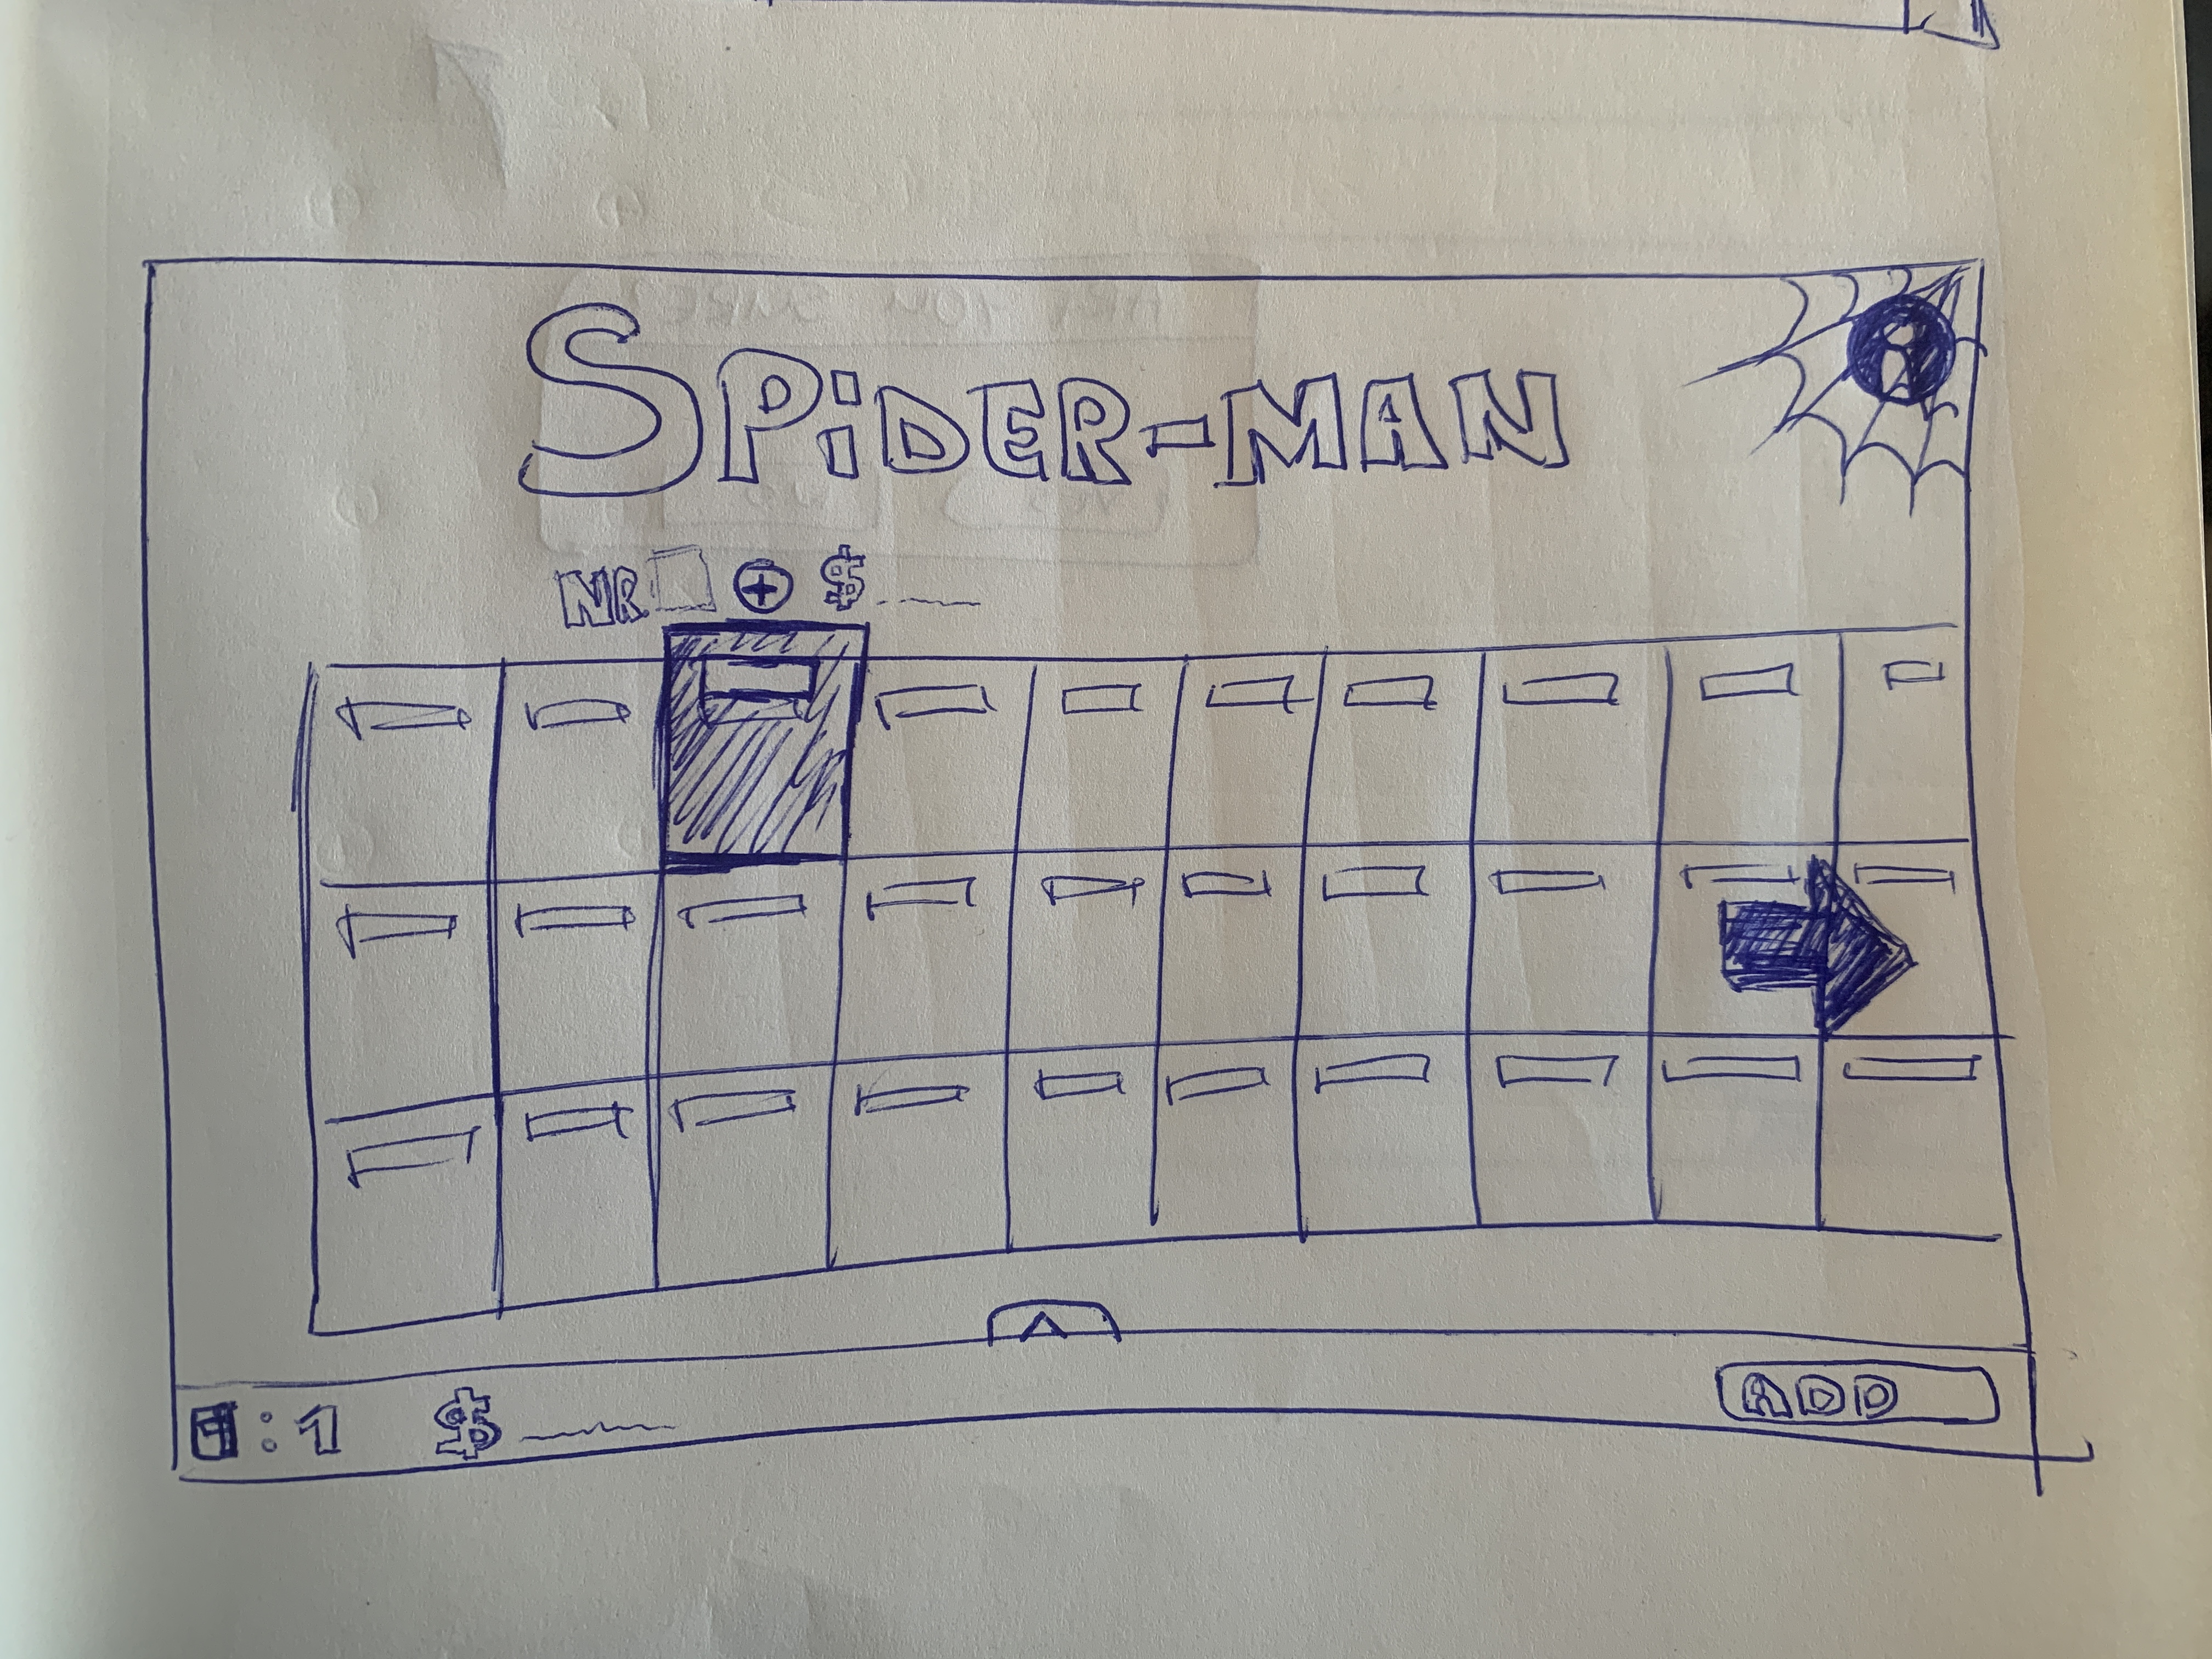 SPiDER-MAN
NR + $
: 1 $
ADD